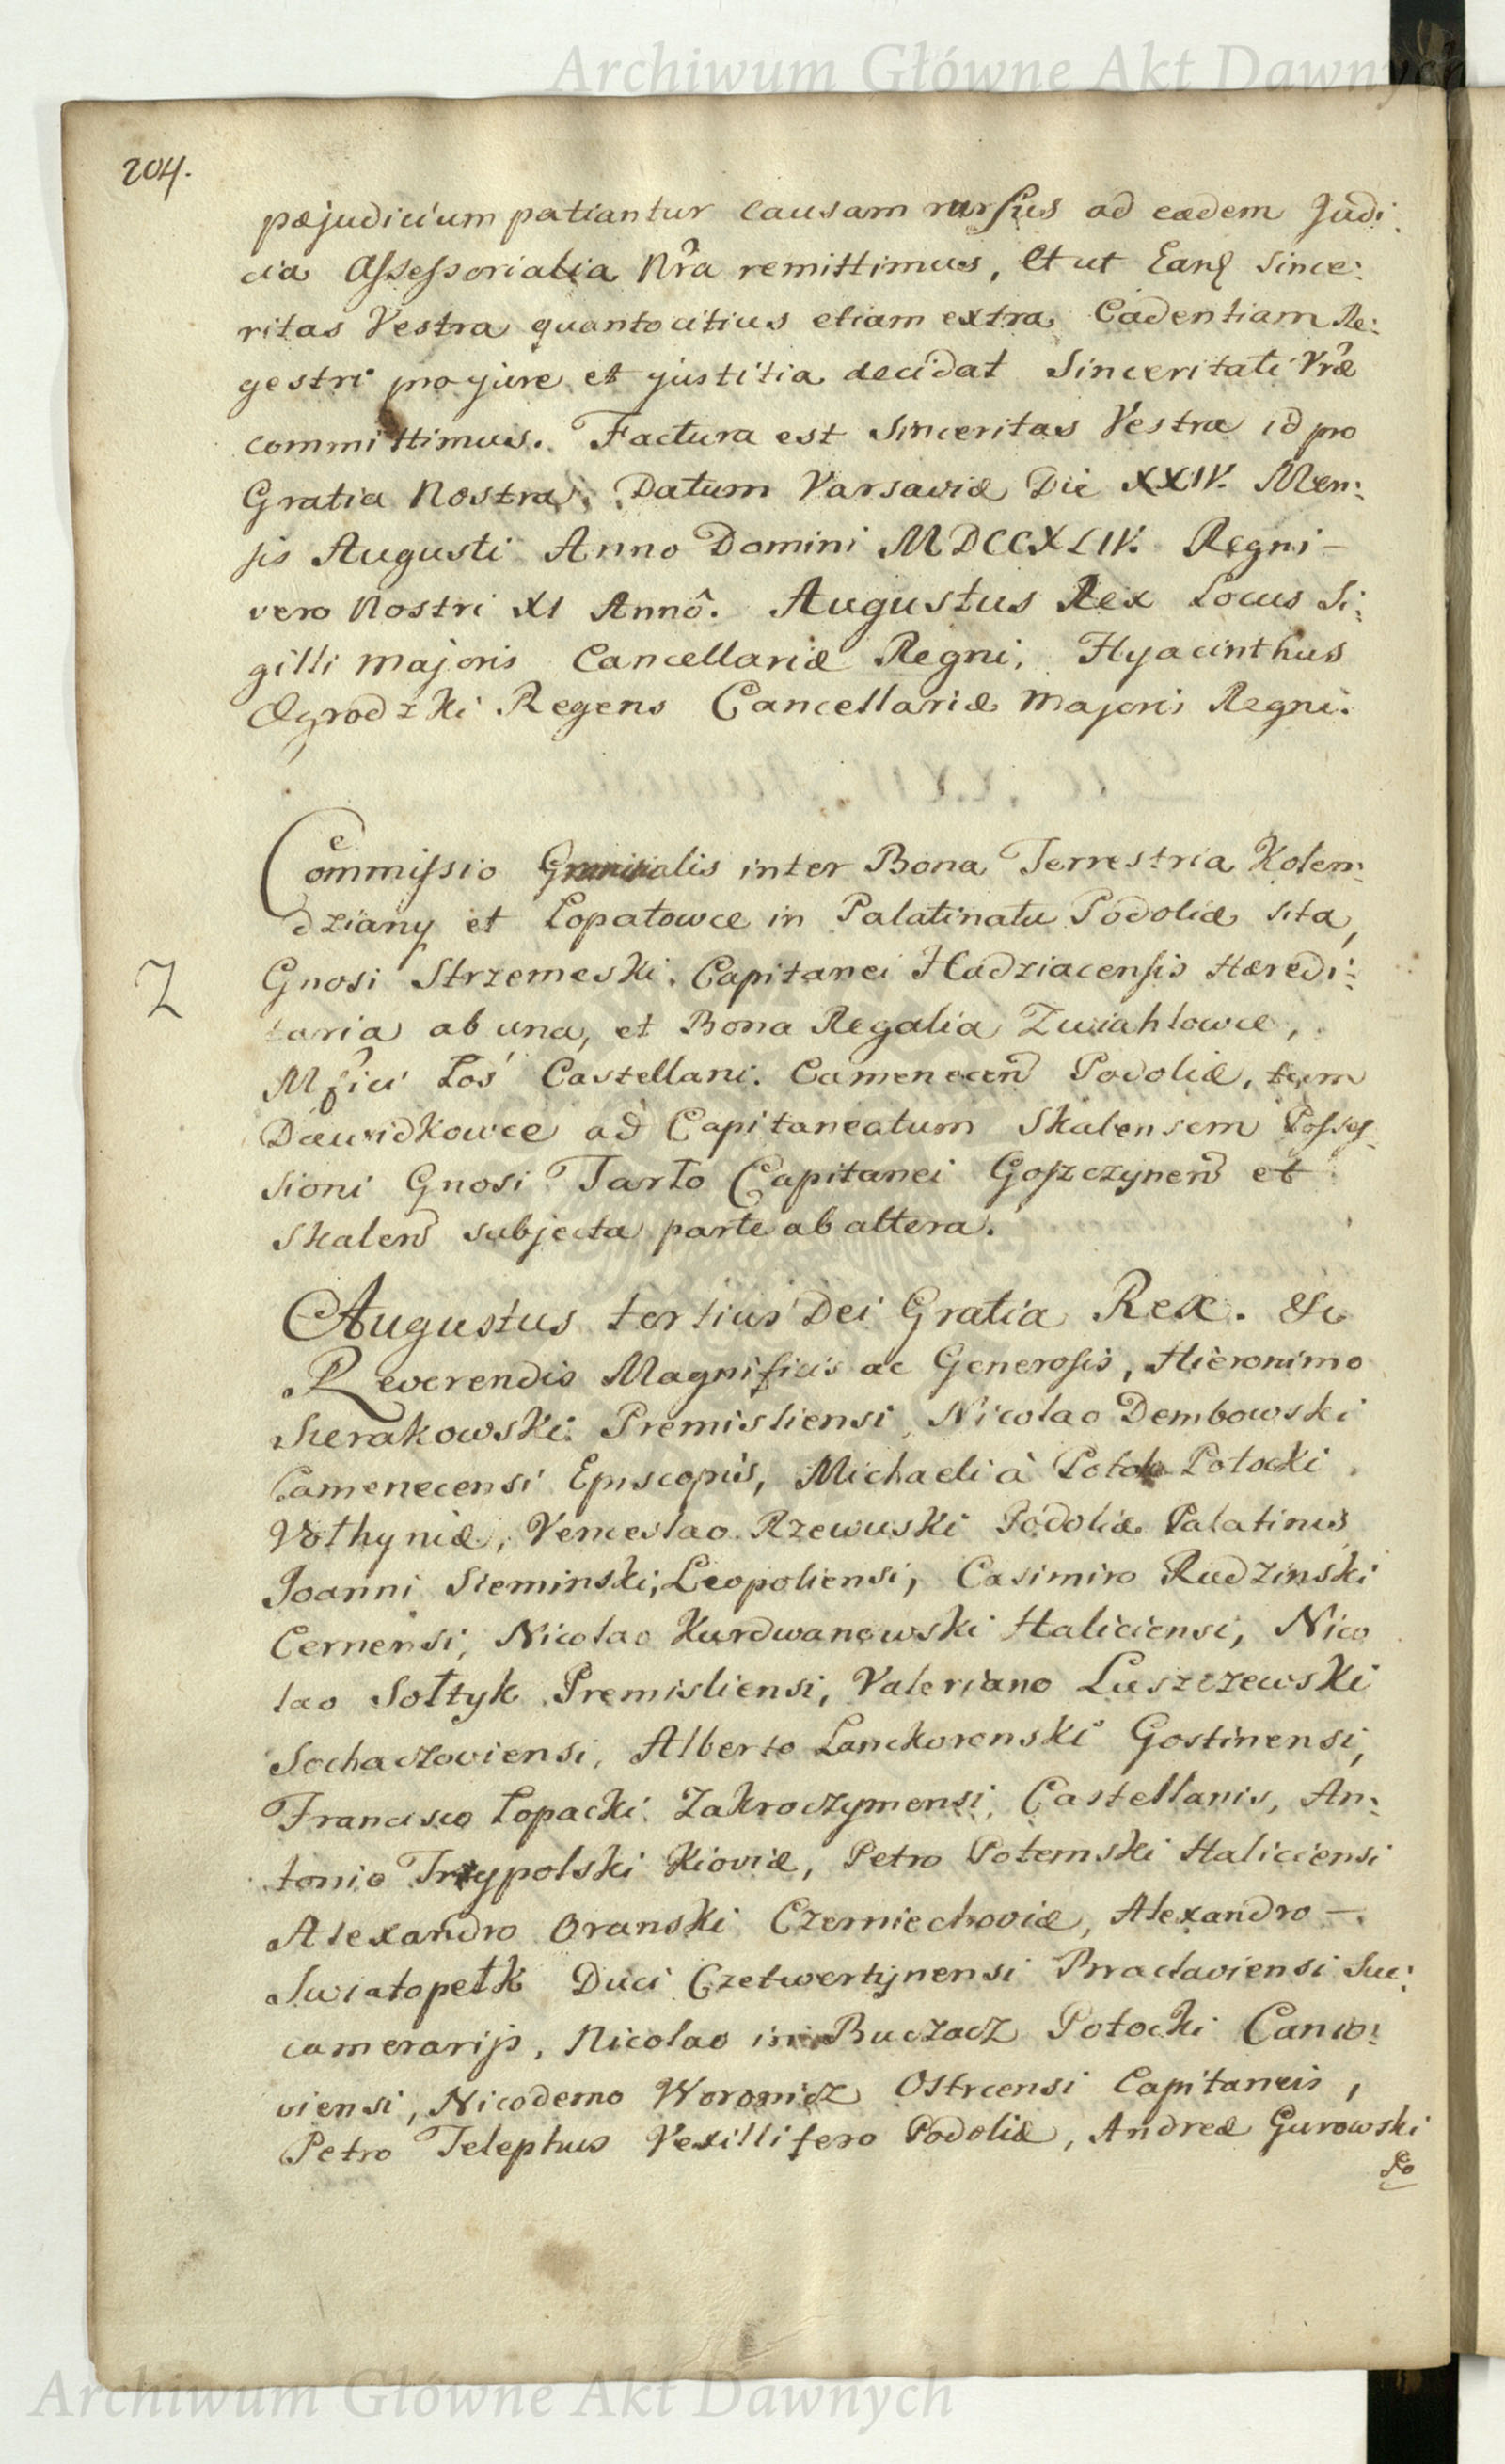 Archiwum Główne Akt Dawnych
204.
præjudicium patiantur causam rursus ad eadem Judi:
cia Assessorialia Nra remittimus, Et ut Eanq Since:
ritas Vestra quantocitius etiam extra Cadentiam Re:
gestri pro jure et justitia decidat Sinceritati Vræ
committimus. Factura est Sinceritas Vestra id pro
Gratia Nostra. Datum Varsaviæ Die XXIV. Men:
sis Augusti Anno Domini MDCCXLIV. Regni –
vero Nostri XI Annô. Augustus Rex Locus Si:
gilli majoris Cancellariæ Regni, Hyacinthus
Ogrodzki Regens Cancellariæ Majoris Regni.
Commissio Granicialis inter Bona Terrestria Kolen:
dziany et Łopatowce in Palatinatu Podoliæ sita,
Gnosi Strzemeski Capitanei Hadziacensis Hæredi:
taria ab una, et Bona Regalia Zwiahlowce,
Mfici Łoś Castellani Camenecen Podoliæ, tum
Dawidkowce ad Capitaneatum Skalensem Posses
sioni Gnosi Tarło Capitanei Goszczynen et
Skalen subjecta parte ab altera.
Augustus tertius Dei Gratia Rex. &c
Reverendis Magnificis ac Generosis, Hieronimo
Sierakowski Premisliensi Nicolao Dembowski
Camenecensi Episcopis, Michaeli à Potok Potocki
Vołhyniæ, Venceslao Rzewuski Podoliæ Palatinis
Joanni Sieminski, Leopoliensi, Casimiro Rudzinski
Cernensi, Nicolao Kurdwanowski Haliciensi, Nico
lao Sołtyk Premisliensi, Valeriano Luszczewski
Sochaczoviensi, Alberto Lanckoronski Gostinensi,
Francisco Łopacki Zakroczymensi, Castellanis, An:
tonio Trypolski Kioviæ, Petro Potemski Haliciensi
Alexandro Oranski Czerniechoviæ, Alexandro –
Swiatopełk Duci Czetwertynensi Bracłaviensi Suc:
camerarijs, Nicolao in Buczacz Potocki Canio:
viensi, Nicodemo Woronicz Ostrcensi Capitaneis,
Petro Telephus Vexillifero Podoliæ, Andreæ Gurowski
Po
Z
Archiwum Główne Akt Dawnych